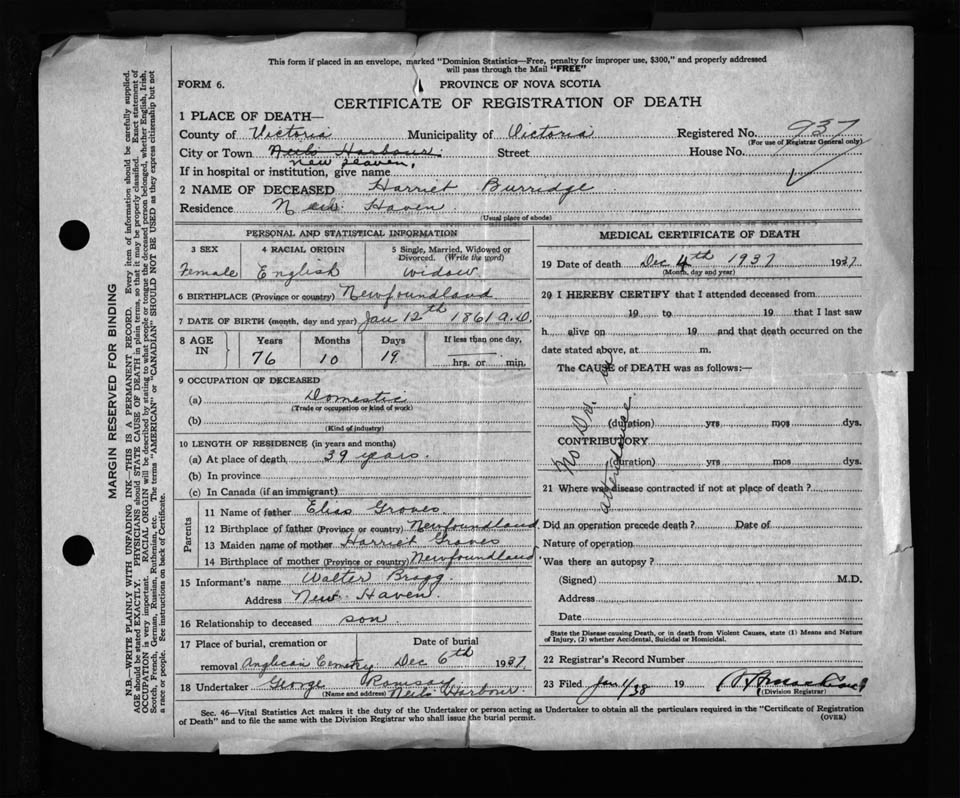 This form if placed in an envelope, marked "Dominion Statistics—Free, penalty for improper use, $300," and properly addressed
will pass through the Mail "FREE"
FORM 6.
PROVINCE OF NOVA SCOTIA
CERTIFICATE OF REGISTRATION OF DEATH
1 PLACE OF DEATH—
County of Victoria Municipality of Victoria Registered No. 937
(For use of Registrar General only)
City or Town Neils Harbour Street House No.
New Haven,
If in hospital or institution, give name
2 NAME OF DECEASED Harriet Burridge
Residence New Haven
(Usual place of abode)
PERSONAL AND STATISTICAL INFORMATION
3 SEX 4 RACIAL ORIGIN 5 Single, Married, Widowed or Divorced. (Write the word)
Female English widow
6 BIRTHPLACE (Province or country) Newfoundland
7 DATE OF BIRTH (month, day and year) Jan 12th 1861 A.D.
8 AGE IN Years Months Days If less than one day,
76 10 19 hrs. or min.
9 OCCUPATION OF DECEASED
(a) Domestic
(Trade or occupation or kind of work)
(b)
(Kind of industry)
10 LENGTH OF RESIDENCE (in years and months)
(a) At place of death 39 years.
(b) In province
(c) In Canada (if an immigrant)
Parents
11 Name of father Elias Groves
12 Birthplace of father (Province or country) Newfoundland
13 Maiden name of mother Harriet Groves
14 Birthplace of mother (Province or country) Newfoundland
15 Informant's name Walter Bragg
Address New Haven
16 Relationship to deceased son
17 Place of burial, cremation or Date of burial
removal Anglican Cemetry Dec 6th 1937
18 Undertaker George Ramsay
(Name and address) Neils Harbour
MEDICAL CERTIFICATE OF DEATH
19 Date of death Dec 4th 1937 1937
(Month, day and year)
20 I HEREBY CERTIFY that I attended deceased from
19 to 19 that I last saw
h alive on 19 and that death occurred on the
date stated above, at m.
The CAUSE of DEATH was as follows:—
No Dr. in
attendance.
(duration) yrs mos dys.
CONTRIBUTORY
(duration) yrs mos dys.
21 Where was disease contracted if not at place of death?
Did an operation precede death? Date of
Nature of operation
Was there an autopsy?
(Signed) M.D.
Address
Date
State the Disease causing Death, or in death from Violent Causes, state (1) Means and Nature
of Injury, (2) whether Accidental, Suicidal or Homicidal.
22 Registrar's Record Number
23 Filed Jan 1/38 19
(Division Registrar)
Sec. 46—Vital Statistics Act makes it the duty of the Undertaker or person acting as Undertaker to obtain all the particulars required in the "Certificate of Registration
of Death" and to file the same with the Division Registrar who shall issue the burial permit. (OVER)
MARGIN RESERVED FOR BINDING
N.B.—WRITE PLAINLY WITH UNFADING INK—THIS IS A PERMANENT RECORD. Every item of information should be carefully supplied.
AGE should be stated EXACTLY. PHYSICIANS should STATE CAUSE OF DEATH in plain terms, so that it may be properly classified. Exact statement of
OCCUPATION is very important. RACIAL ORIGIN will be described by stating to what people or tongue the deceased person belonged, whether English, Irish,
Scotch, French, German, Russian, Ruthenian, etc. The terms "AMERICAN" or "CANADIAN" SHOULD NOT BE USED as they express citizenship but not
a race or people. See instructions on back of Certificate.